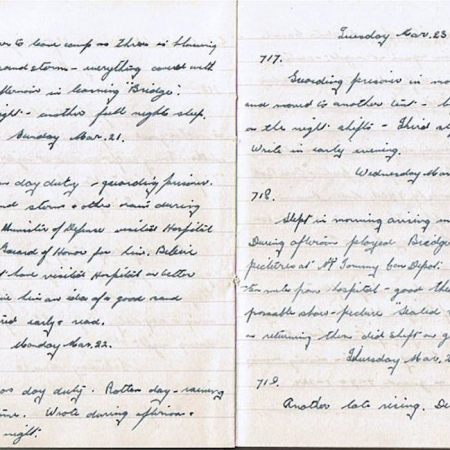 to leave camp as there is blowing
sand storm - everything covered with
afternoon in learning "Bridge".
night - another full nights sleep.
Sunday Mar. 21.
day duty - guarding prisoner.
sand storm & other rain during
Minister of Defense visited Hospital
Guard of Honor for him. Believe
have visited Hospital in better
him an idea of a good sand
early & read.
Monday Mar. 22.
on day duty. Rotten day - raining
Wrote during afternoon &
night.
Tuesday Mar. 23
717.
Guarding prisoner in
and moved to another tent -
on the night shifts - Third
Write in early evening.
Wednesday Mar
718.
Slept in morning arising
During afternoon played Bridge
pictures at Tommy Con Depot.
miles from hospital - good
possible show - picture "Sealed
on returning then did slept on
Thursday Mar. 2
718.
Another late rising.